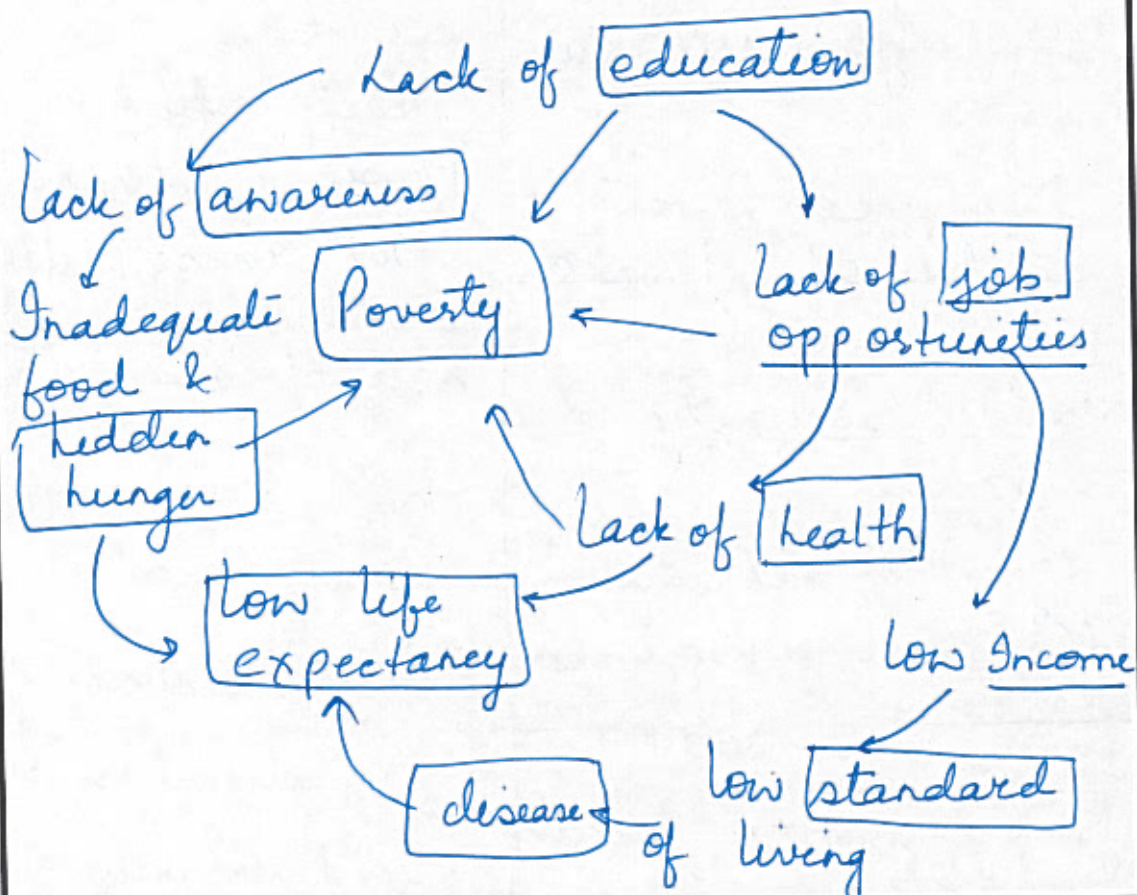 Lack of education
Lack of awareness
Inadequate
food &
hidden
hunger
Poverty
Lack of job
opportunities
Lack of health
Low life
expectancy
Low Income
Low standard
of living
disease